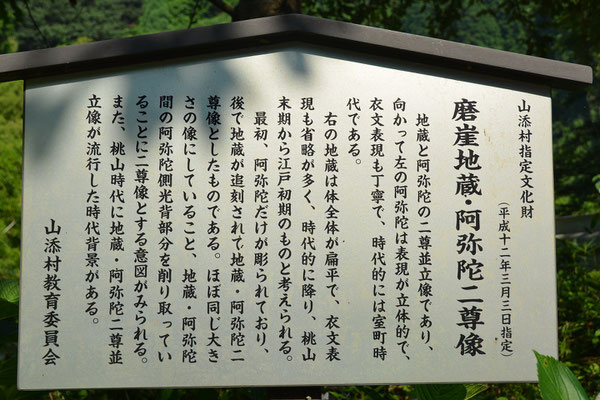 山添村指定文化財
（平成十二年三月三日指定）
磨崖地蔵・阿弥陀二尊像
地蔵と阿弥陀の二尊並立像であり、
向かって左の阿弥陀は表現が立体的で、
衣文表現も丁寧で、時代的には室町時
代である。
右の地蔵は体全体が扁平で、衣文表
現も省略が多く、時代的に降り、桃山
末期から江戸初期のものと考えられる。
最初、阿弥陀だけが彫られており、
後で地蔵が追刻されて地蔵・阿弥陀二
尊像としたものである。ほぼ同じ大き
さの像にしていること、地蔵・阿弥陀
間の阿弥陀側光背部分を削り取ってい
ることに二尊像とする意図がみられる。
また、桃山時代に地蔵・阿弥陀二尊並
立像が流行した時代背景がある。
山添村教育委員会